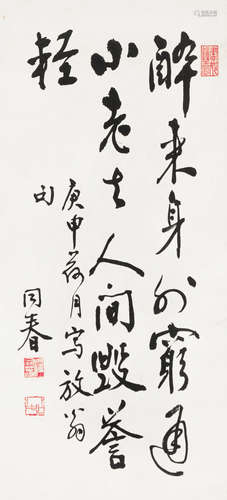 醉来身外窮通
小老去人间毁誉
轻
庚申荷月写放翁
句
同春